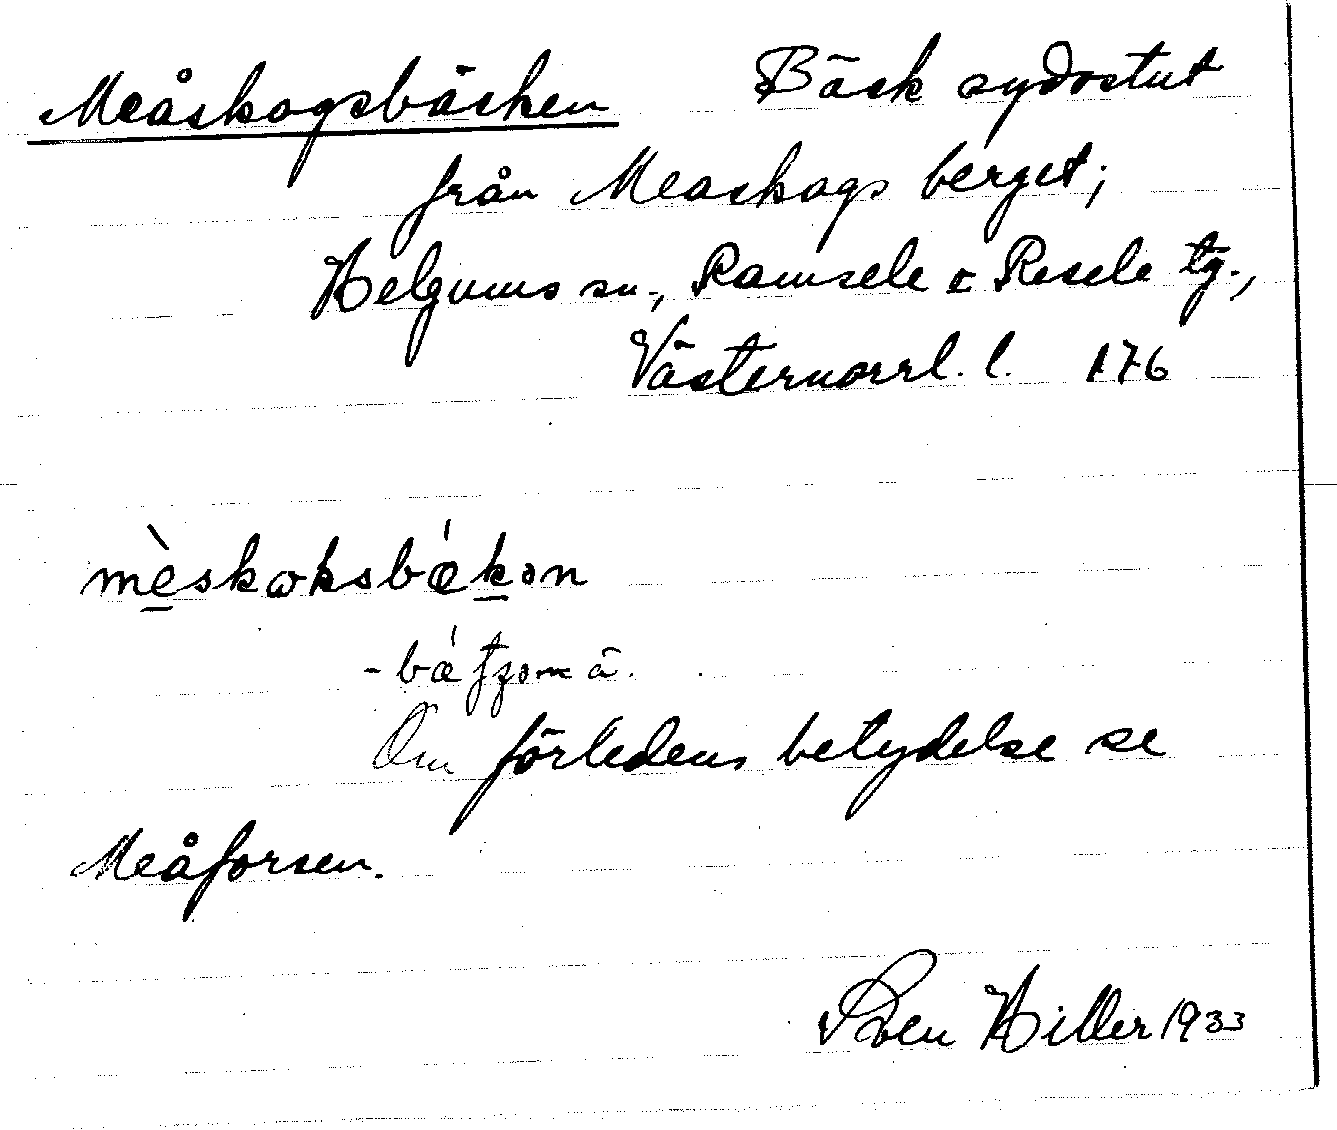 Meåskogsbäcken Bäck sydostut
från Measkogs berget;
Helgums sn., Ramsele o Resele tg.,
Västernorrl. l. 176
mèskoksbǽkən
-bǽ
Om förledens betydelse se
Meåforsen.
Sven Hiller 1933